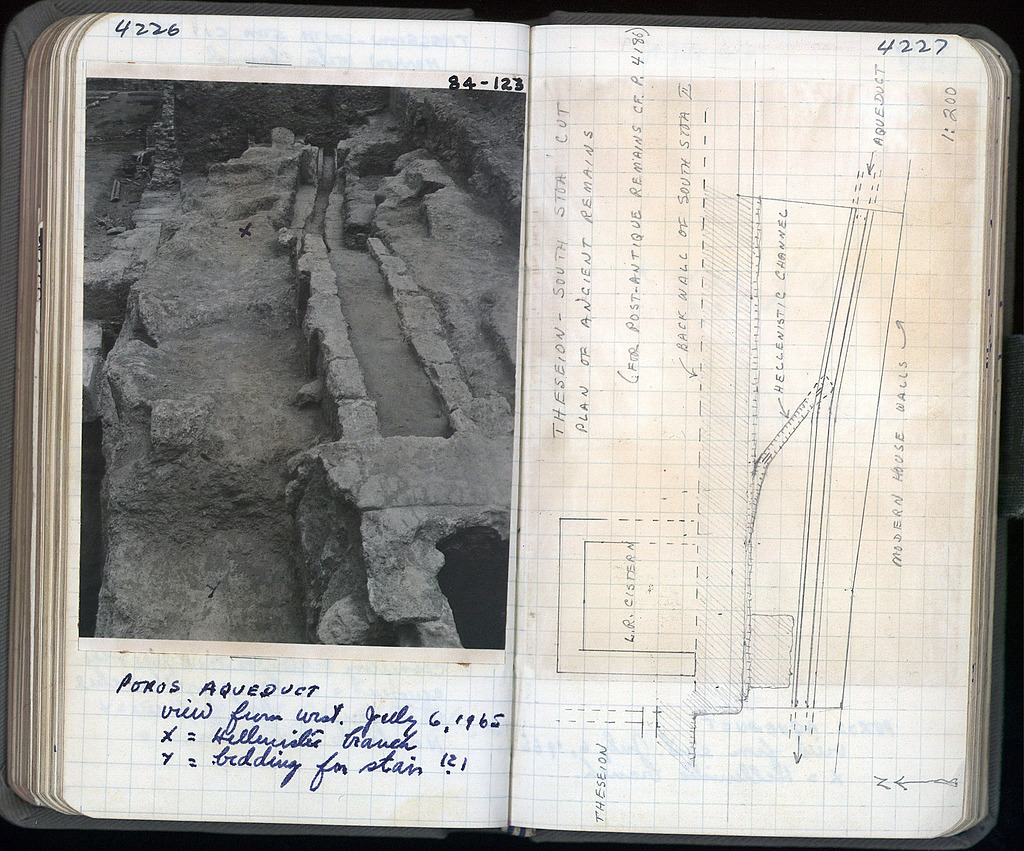 4226
84-123
X
Y
POROS AQUEDUCT
view from west. July 6, 1965
X = Hellenistic branch
Y = bedding for stair (?)
4227
THESEION - SOUTH STOA CUT
PLAN OF ANCIENT REMAINS
(FOR POST-ANTIQUE REMAINS CF. P. 4186)
BACK WALL OF SOUTH STOA II
HELLENISTIC CHANNEL
AQUEDUCT
1:200
MODERN HOUSE WALLS
L.R. CISTERN
THESEION
N